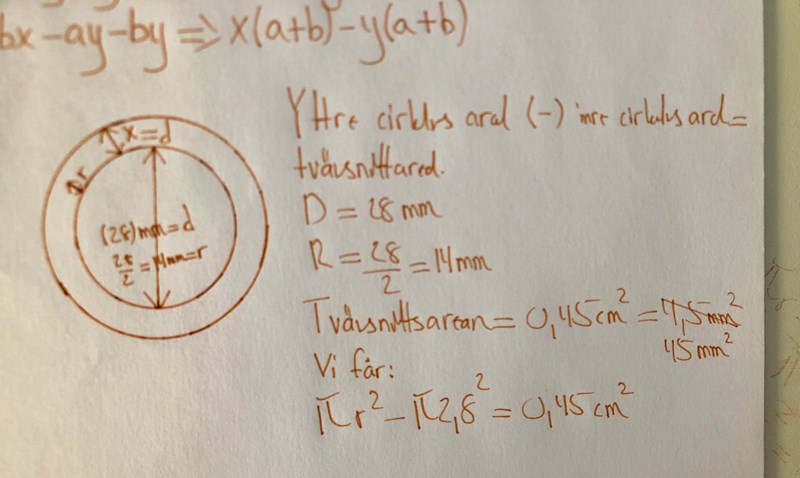 bx-ay-by => x(a+b)-y(a+b)
x=d
r
(28)mm=d
28/2=14mm=r
Yttre cirklns areal (-) inre cirkelns areal=
tvärsnittareal.
D=28mm
R=28/2=14mm
Tvärsnittsarean=0,45cm²=4,5mm²
45mm²
Vi får:
πr²-π2,8²=0,45cm²